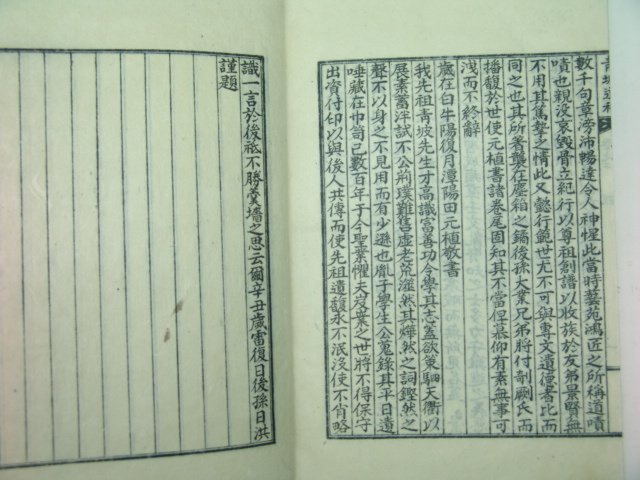 數千句章滂沛暢達令人神惺此當時藝苑鴻匠之所稱道嘖
嘖也親沒哀毀骨立紀行以尊祖創譜以收族於友弟景賢無
不用其篤摯之情此又懿行範世尤不可與專文遺德者比而
同之也其所著襲在塵箱之鐍後孫大業兄弟將付剞劂氏而
播馥於世使元植書諸卷尾固知其不當但慕仰有素無事可
洩而不終辭
歲在白牛陽復月潭陽田元植敬書
我先祖青坡先生才高識富善功令學其志蓋欲策駟天衢以
展素蓄泮試不公荊璞難售虛老荒濱然其燁然之詞鏗然之
聲不以身之不見用而有少遜也胤子學生公蒐錄其平日遺
唾藏在巾笥已數百年于今聖業懼夫岌業之世將不得保守
出資付印以與後人共傳而使先祖遺馥永不泯沒使不肖略
識一言於後祗不勝羹墻之思云爾辛丑歲雷復日後孫日洪
謹題